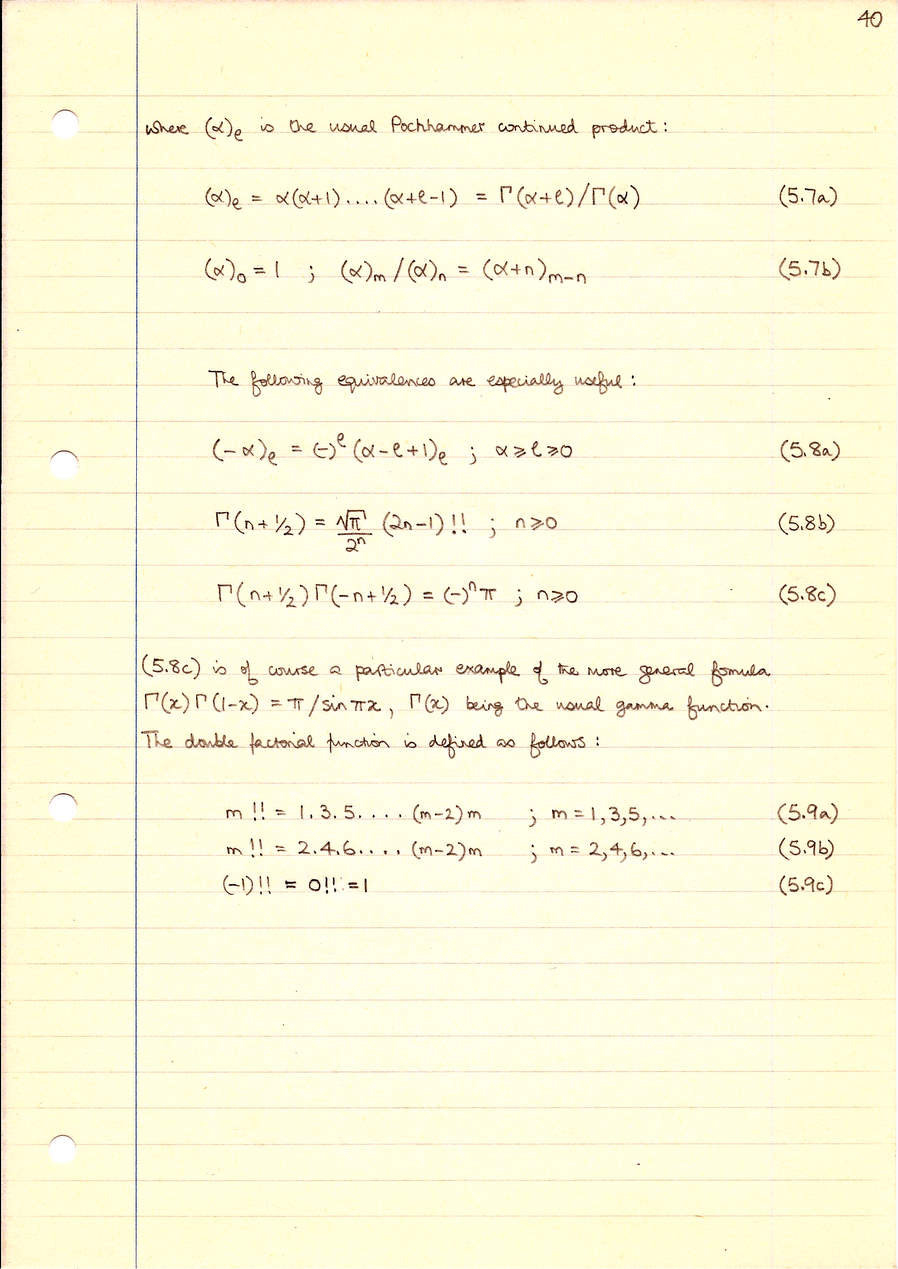 40
where (α)ℓ is the usual Pochhammer continued product :
(α)ℓ = α(α+1) .... (α+ℓ-1) = Γ(α+ℓ)/Γ(α) (5.7a)
(α)₀ = 1 ; (α)ₘ/(α)ₙ = (α+n)ₘ₋ₙ (5.7b)
The following equivalences are especially useful :
(-α)ℓ = (-)^ℓ (α-ℓ+1)ℓ ; α ⩾ ℓ ⩾ 0 (5.8a)
Γ(n+1/2) = √π/2ⁿ (2n-1)!! ; n⩾0 (5.8b)
Γ(n+1/2)Γ(-n+1/2) = (-)ⁿπ ; n⩾0 (5.8c)
(5.8c) is of course a particular example of the more general formula
Γ(x)Γ(1-x) = π/sin πx, Γ(x) being the usual gamma function.
The double factorial function is defined as follows :
m!! = 1.3.5....(m-2)m ; m = 1,3,5,... (5.9a)
m!! = 2.4.6....(m-2)m ; m = 2,4,6,... (5.9b)
(-1)!! = 0!! = 1 (5.9c)